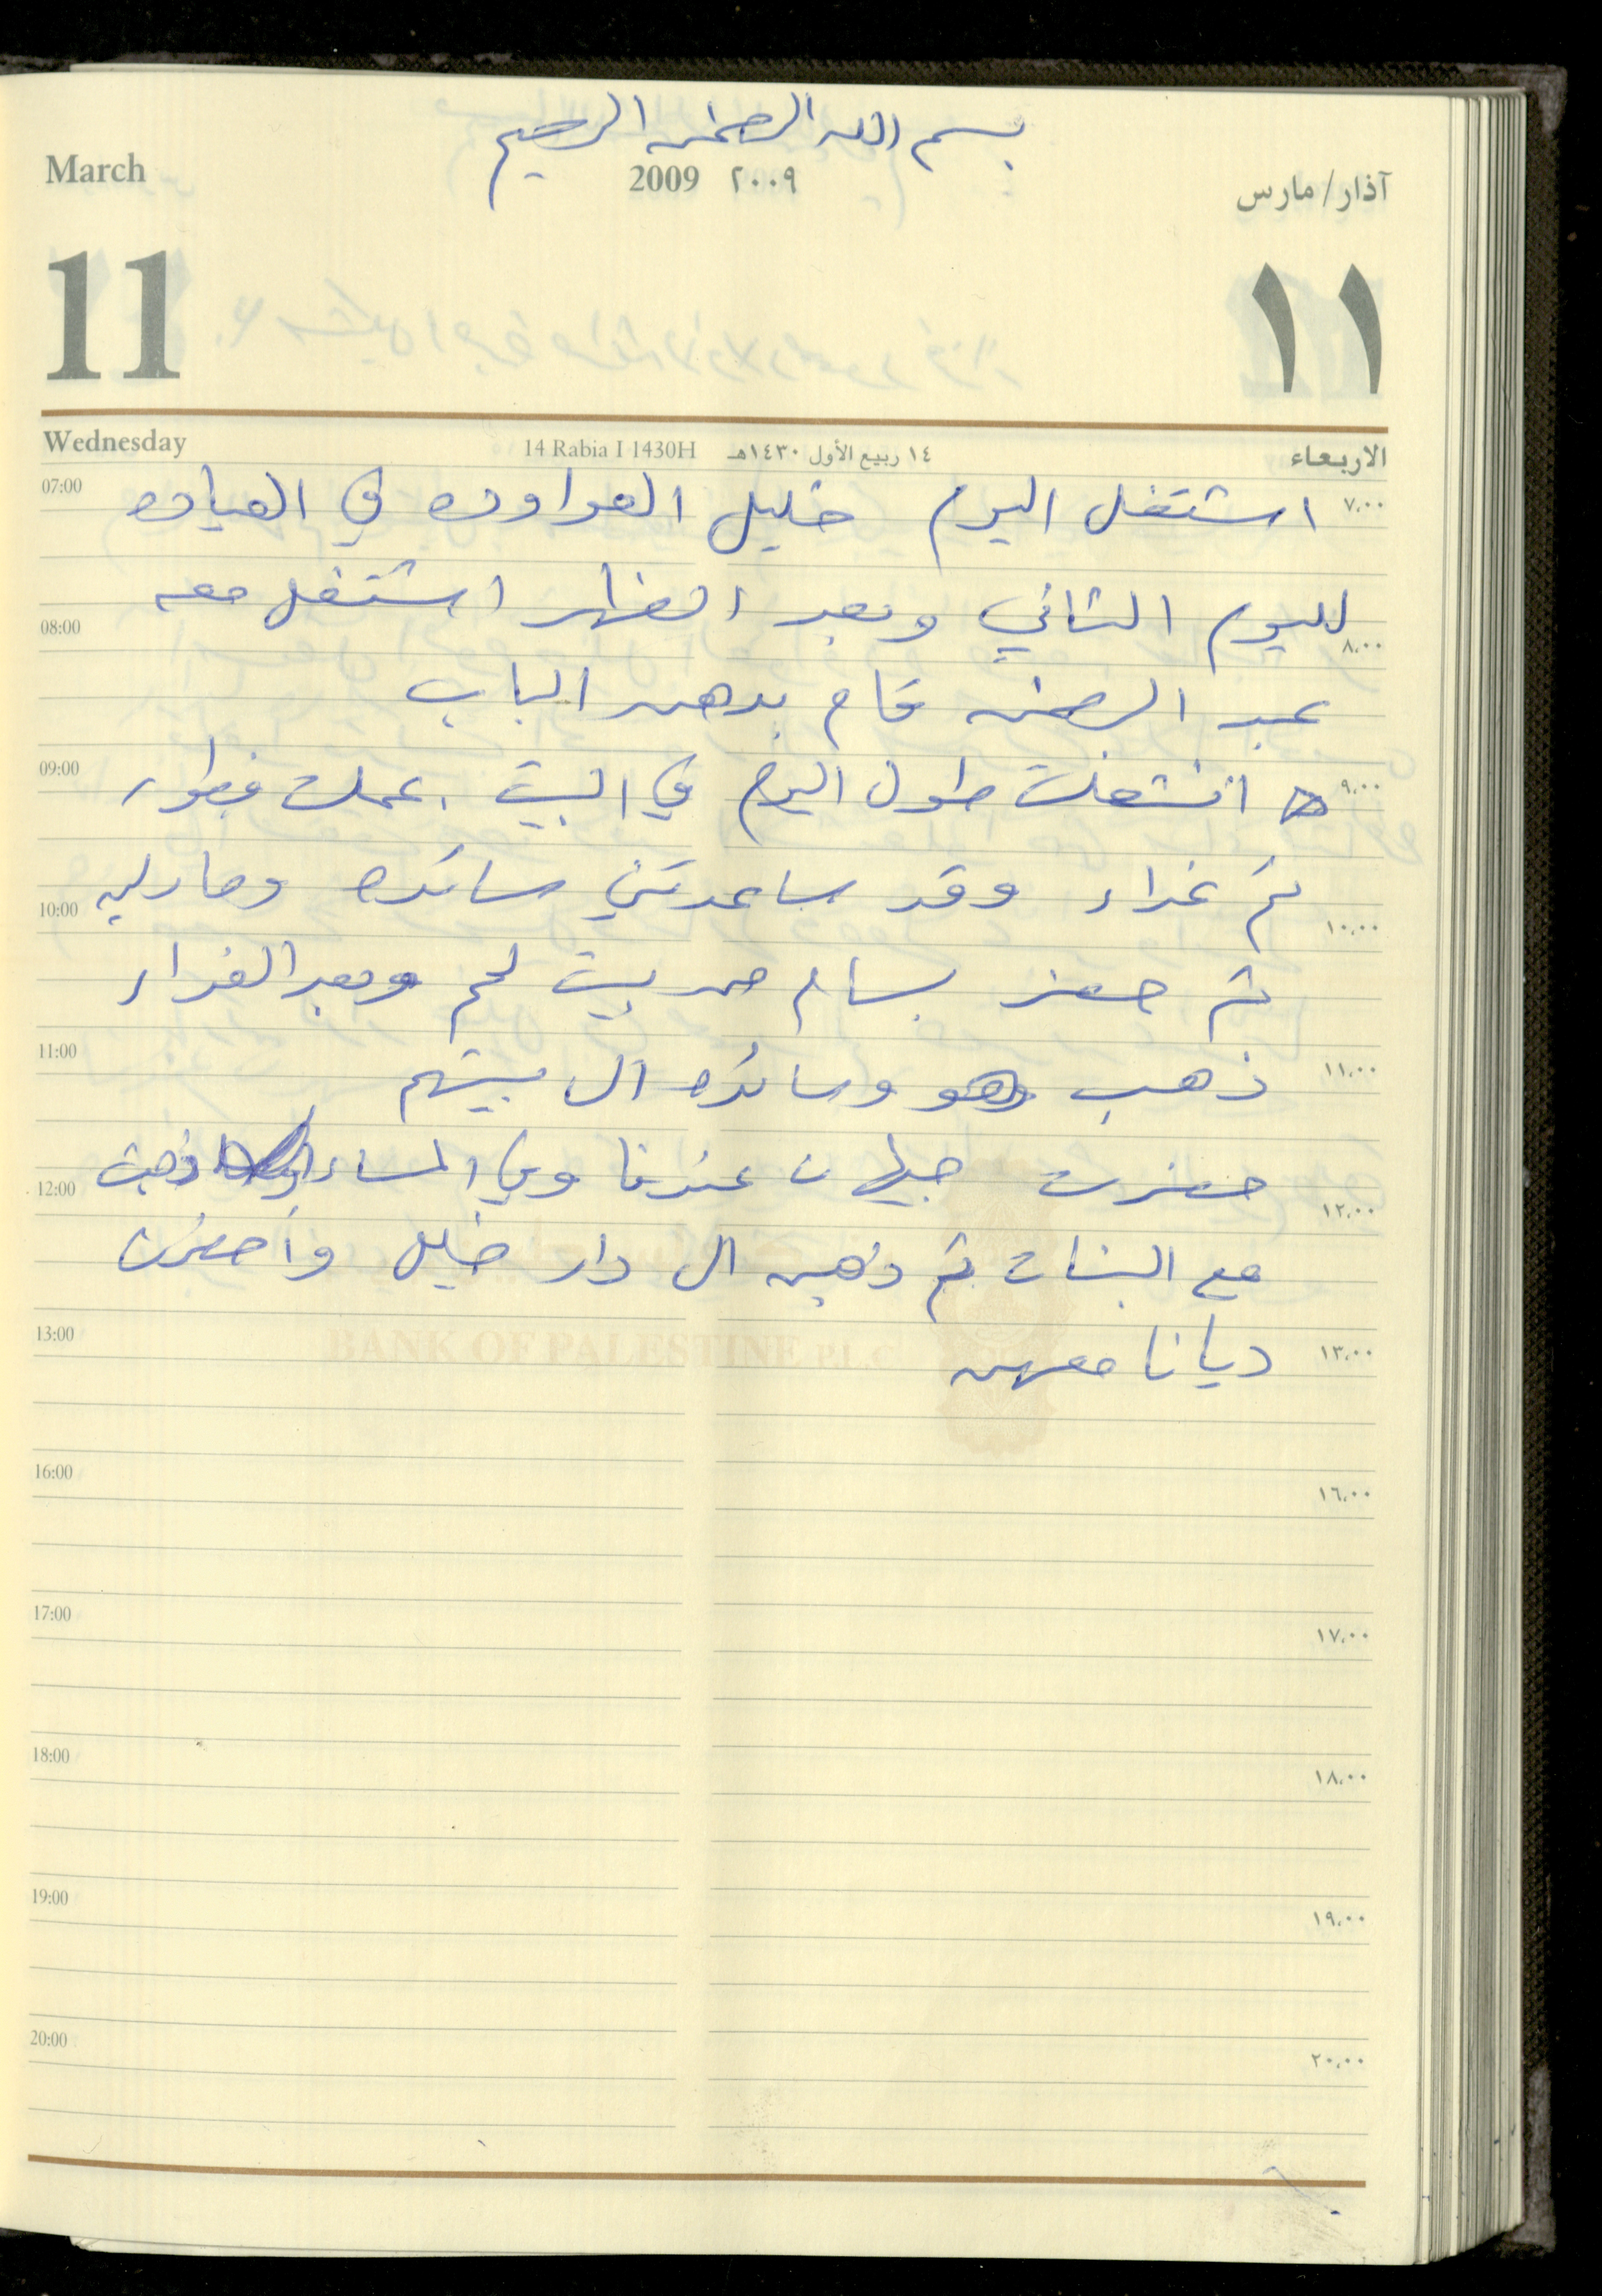 بسم الله الرحمن الرحيم
March
2009 ٢٠٠٩
آذار/مارس
11
١١
Wednesday
14 Rabia I 1430H ١٤ ربيع الأول ١٤٣٠هـ
الاربعاء
07:00 ٧,٠٠
اشتغل اليوم خليل العواوده في العياده
لليوم الثاني وبعد الظهر اشتغل معه
08:00 ٨,٠٠
عبد الرحمن قام بدهن الباب
09:00 ٩,٠٠
انشغلت طول اليوم في البيت . عملت فطور
ثم غداء وقد ساعدتني سائده ومارليه
10:00 ١٠,٠٠
ثم حضر بسام من بيت لحم وبعد الغداء
11:00 ١١,٠٠
ذهب هو وسائده الى بيتهم
حضرت جيهان عندنا وفي المساء ذهبت
12:00 ١٢,٠٠
مع البنات ثم ذهبن الى دار خليل وأحضرن
13:00 ١٣,٠٠
ديانا معهن
BANK OF PALESTINE P.L.C
16:00 ١٦,٠٠
17:00 ١٧,٠٠
18:00 ١٨,٠٠
19:00 ١٩,٠٠
20:00 ٢٠,٠٠